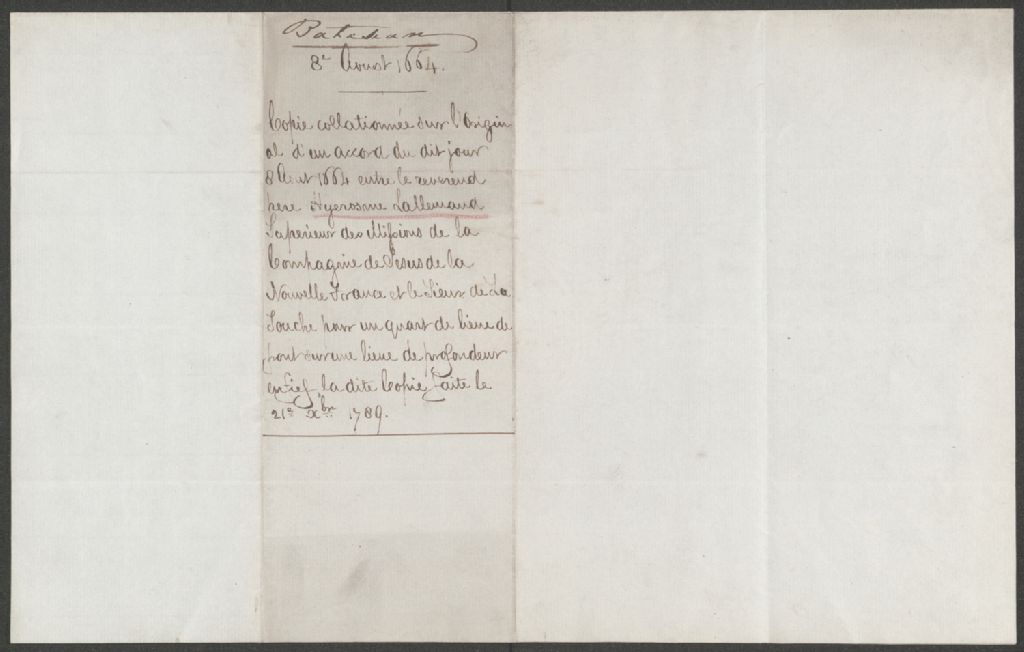 Batiscan
8e Aoust 1664.
Copie collationnée sur l'Origin
al d'un accord du dit jour
8 Aout 1664 entre le reverend
pere Hyerosme Lallemand
Superieur des Missions de la
Compagnie de Jesus de la
Nouvelle France et le Sieur de La
Touche pour un quart de lieue de
front sur une lieue de profondeur
en fief, la dite Copie faite le
21e Xbre 1789.